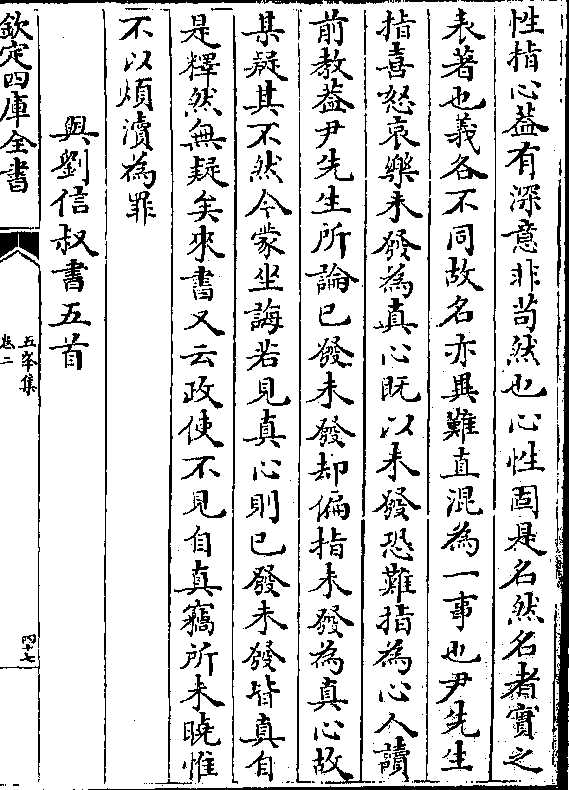 性指心蓋有深意非苟然也心性固是名然名者實之
表著也義各不同故名亦異難直混為一事也尹先生
指喜怒哀樂未發為真心既以未發恐難指為心人讀
前教蓋尹先生所論已發未發却偏指未發為真心故
某疑其不然今蒙坐誨若見真心則已發未發皆真自
是釋然無疑矣來書又云政使不見自真竊所未曉惟
不以煩瀆為罪
與劉信叔書五首
欽定四庫全書
五峯集
卷二
四十七